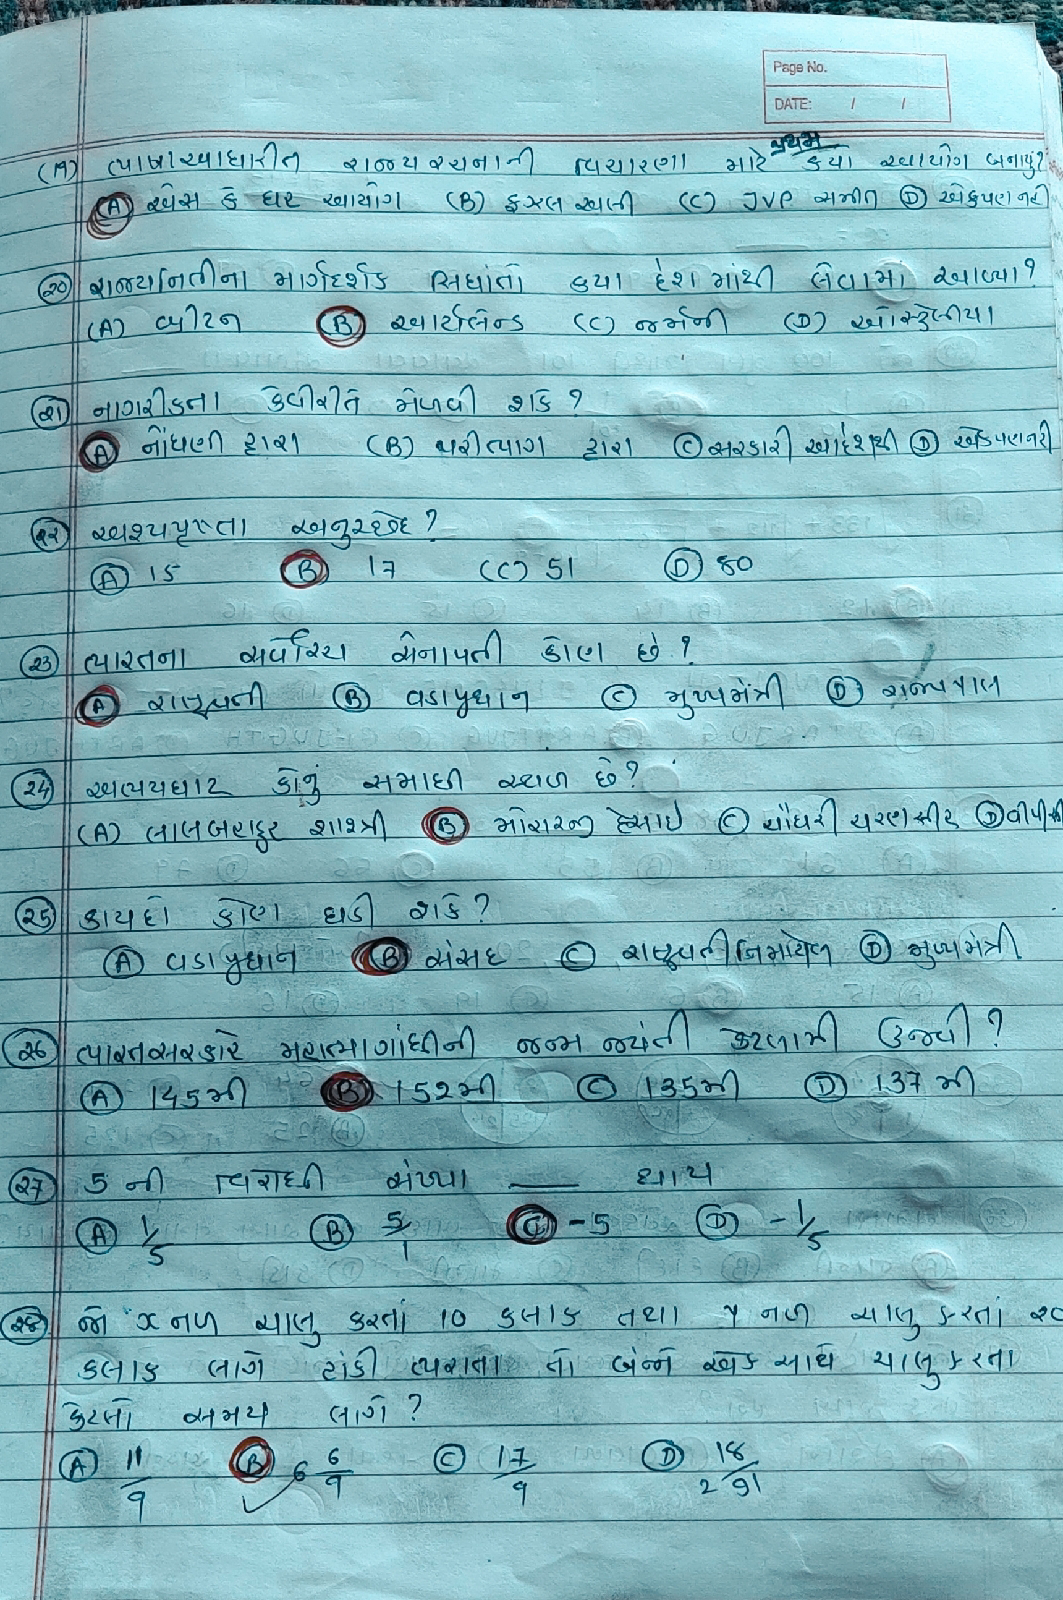 Page No.
DATE: / /
પ્રથમ
(A) ભાષાઆધારીત રાજ્યરચનાની વિચારણા માટે કયો આયોગ બનાયું?
(A) એસ કે ધર આયોગ (B) ફઝલ અલી (C) JVP સમીત (D) એકપણ નહી
(20) રાજ્યનિતીના માર્ગદર્શક સિધાંતો કયા દેશમાંથી લેવામાં આવ્યા?
(A) બ્રીટન (B) આર્યલેન્ડ (C) જર્મની (D) ઓસ્ટ્રેલીયા
(૨૧) નાગરીકતા કેવીરીતે મેળવી શકે?
(A) નોંધણી દ્વારા (B) પરીત્યાગ દ્વારા (C) સરકારી આદેશથી (D) એકપણ નહી
(૨૨) અશ્યપૃશ્તા અનુચ્છેદ?
(A) 15 (B) 17 (C) 51 (D) 80
(૨3) ભારતના સર્વોચ્ચ સેનાપતી કોણ છે?
(A) રાષ્ટ્રપતી (B) વડાપ્રધાન (C) મુખ્યમંત્રી (D) રાજ્યપાલ
(24) અભયઘાટ કોનું સમાધી સ્થળ છે?
(A) લાલબહાદુર શાશ્ત્રી (B) મોરારજી દેસાઇ (C) ચૌધરી ચરણસીંહ (D) વીપીસીં
(25) કાયદો કોણ ઘડી શકે?
(A) વડાપ્રધાન (B) સંસદ (C) રાષ્ટ્રપતી નિમાયેલ (D) મુખ્યમંત્રી
(૨6) ભારતસરકારે મહાત્માગાંધીની જન્મ જયંતી કેટલામી ઉજવી?
(A) 145મી (B) 152મી (C) 135મી (D) 137 મી
(૨7) 5 ની વિરોધી સંખ્યા ___ થાય
(A) 1/5 (B) 5/1 (C) -5 (D) -1/5
(૨૪) જો x નળ ચાલુ કરતાં 10 કલાક તથા y નળ ચાલુ કરતાં ૨૦
કલાક લાગે ટાંકી ભરાતા તો બંન્ને એક સાથે ચાલુ કરતા
કેટલો સમય લાગે?
(A) 11/9 (B) 6 6/9 (C) 17/9 (D) 2 18/91